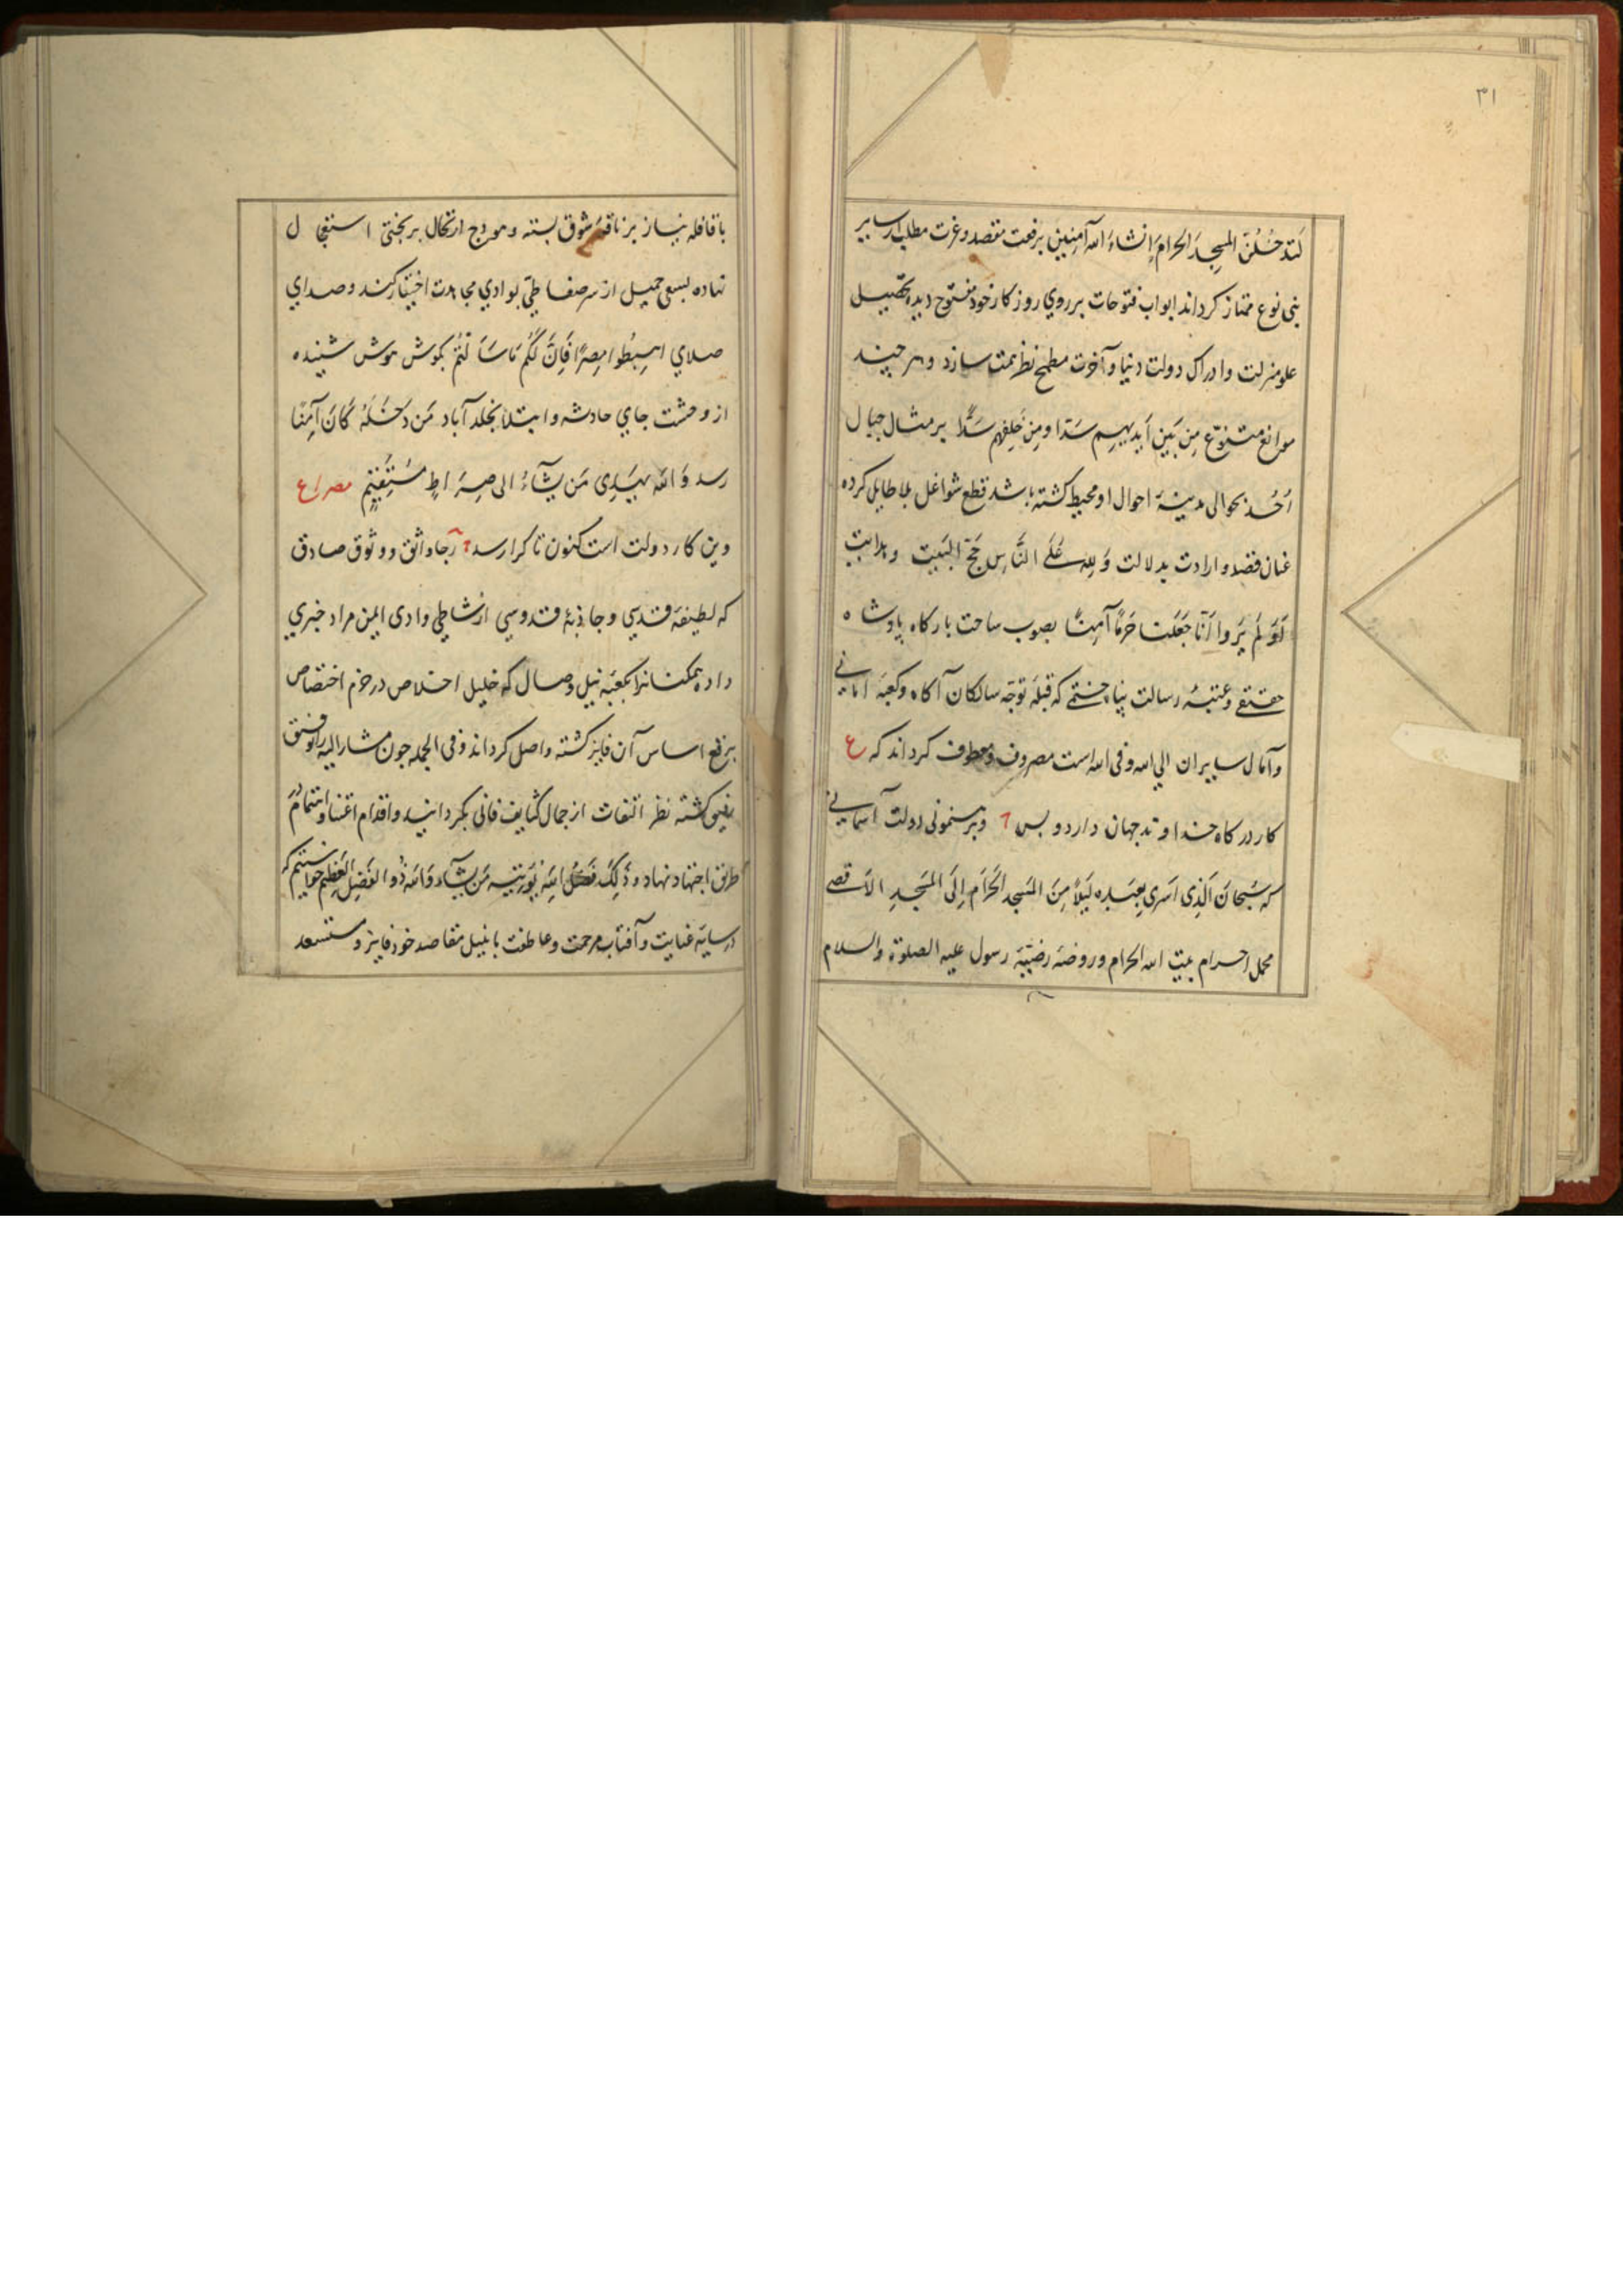 ۳۱
لَتَدخُلُنَّ المسجِدَ الحَرامَ اِنشاءَ اللّه آمِنِین برفعت مقصد و عزت مطلب از سایر
بنی نوع ممتاز کرداند ابواب فتوحات بر روی روزکار خود مفتوح دیده تحصیل
علو منزلت و ادراک دولت دنیا و آخرت مطمح نظر همت سازد و هر چند
موانع متنوّع مِن بَینِ اَیدیهِم سَدّا و مِن خَلفِهِم سَدًّا بر مثال جبال
اُحُد بحوالی مدینهٔ احوال او محیط کشته باشد قطع شواغل بلا طایل کرده
عنان قصد و ارادت بدلالت وَلِلّهِ عَلَی النَّاسِ حَجُّ البَیت و هدایت
اَوَلَم یَرَوا اَنَّا جَعَلنا حَرَمًا آمِنًا بصوب ساحت بارکاه پادشاه
حقیقی و عتبهٔ رسالت پناه ختمی که قبلهٔ توجه سالکان آکاه و کعبهٔ امانی
و آمال سایران الی اللّه و فی اللّه است مصروف و معطوف کرداند که ع
کار درکاه خداوند جهان دارد و بس و برهنمونی دولت آسمانی
که سُبحانَ الَّذی اَسری بِعَبدِه لَیلًا مِنَ المَسجدِ الحَرَامِ اِلَی المَسجِدِ الاَقصی
محمل احرام بیت اللّه الحرام و روضهٔ رضیّهٔ رسول علیه الصلوة والسلام
با قافله نیاز بر ناقهٔ شوق بسته و هودج ارتحال بر بختی استعجال
نهاده بسعی جمیل از سر صفا طیّ بوادی مجاهدت اختیار کند و صدای
صلای اِهبِطُوا مِصرًا فَاِنَّ لَکُم مَا سَاَلتُم بکوش هوش شنیده
از وحشت جای حادثه و ابتلا بخلد آباد مَن دَخَلَهُ کَانَ آمِنًا
رسد وَ اللّه یَهدِی مَن یَشآءُ الی صِرَاطٍ مُستَقِیمٍ مصراع
وین کار دولت است کنون تا کرا رسد رجا واثق و وثوق صادق
که لطیفهٔ قدسی و جاذبهٔ قدوسی از شاطی وادی ایمن مراد خبری
داده همکنانرا بکعبهٔ نیل وصال که خلیل اخلاص در حرم اختصاص
برفع اساس آن فایز کشته واصل کرداند و فی الجمله چون مشار الیه را توفیق
رفیق کشته نظر التفات از جمال کثایف فانی بکردانید و اقدام اعتنا و اهتمام در
طریق اجتهاد نهاد و ذَلِکَ فَضلُ اللّهِ یُؤتِیهِ مَن یَشآء وَاللّه ذُو الفَضلِ العَظِیم خواستیم که
در سایهٔ عنایت و آفتاب مرحمت و عاطفت با نیل مقاصد خود فایز و مستسعد